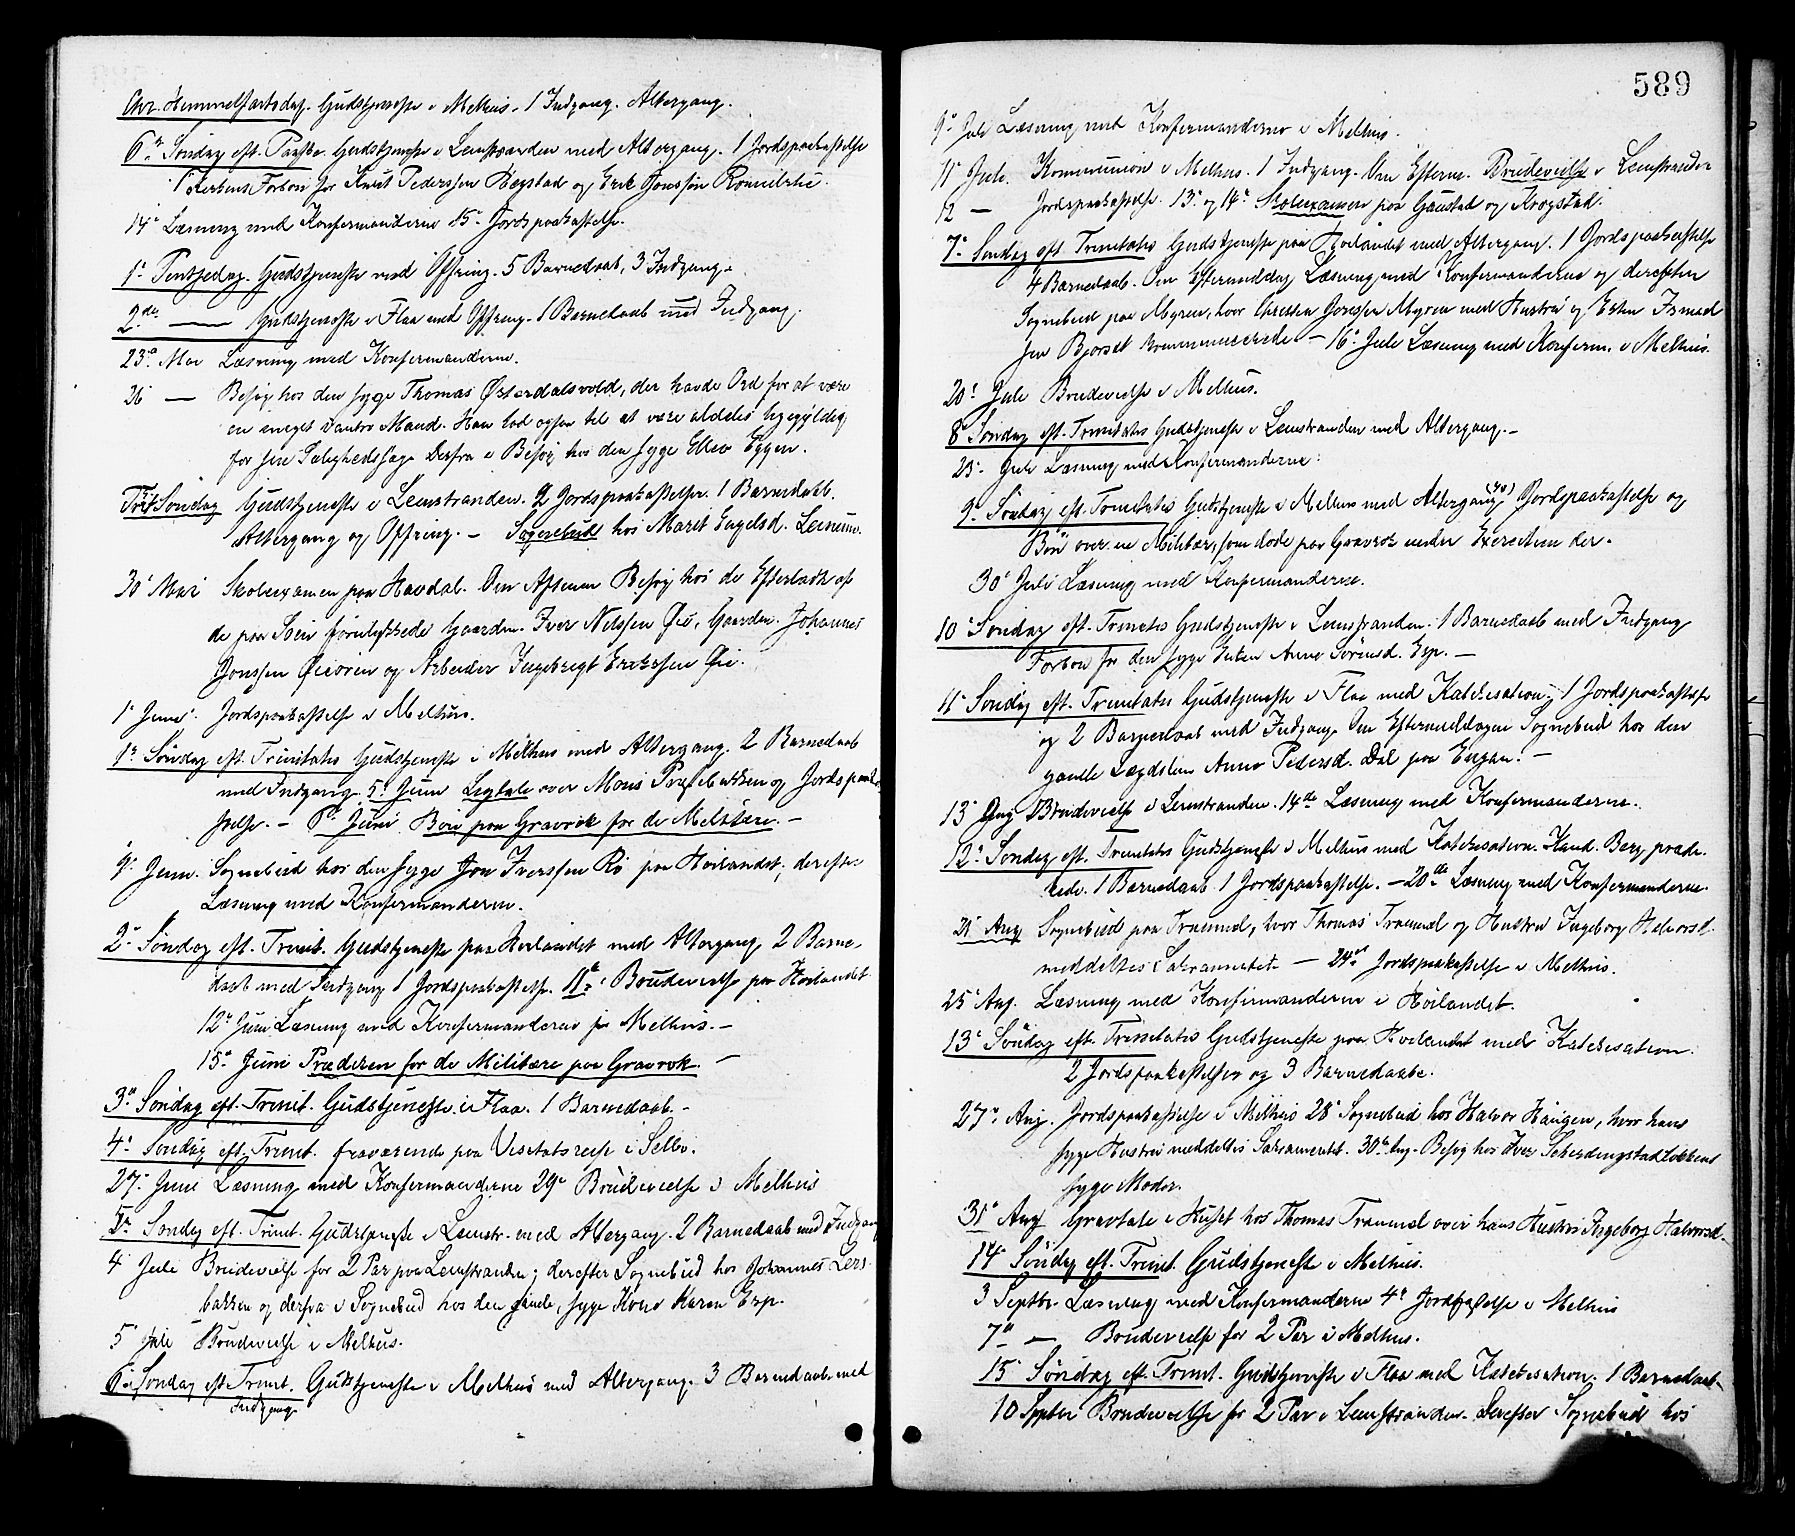 Chr. Hemmelfartsdag. Gudstjeneste i Melhus. 1 Indgang. Altergang.
6te Söndag eft. Paaske Gudstjeneste i Leinstranden med Altergang. 1 Jordspaakastelse
1 Kirkens Forbön for Knut Pederssen Hegstad og Erik Jonssön
14de Læsning med Konfermanderne 15de Jordspaakastelse.
1e Pintsedag. Gudstjeneste med Offring. 5 Barnedaab, 3 Indgang.
2den — Gudstjeneste i Flaa med Offring. 1 Barnedaab med Indgang.
23de Mai Læsning med Konfermanderne.
26 — Besög hos den syge Thomas Österdalsvold, der havde Ord for at være
en meget vantro Mand. Han lod ogsaa til at være aldeles ligegyldig
for sin Salighedssag. Derfra i Besög hos den syge Ellev Eggen.
Söndag Gudstjeneste i Leinstranden. 2 Jordspaakastelser. 1 Barnedaab.
Altergang og Offring. — Sognebud hos Marit Engelsd. Leinum.
30e Mai Skoleexamen paa Havdal. Om Aftenen Besög hos de Efterladte af
de paa Söen forulykkede Gaardm. Iver Nilssen Öie, Gaardm. Johannes
Jonssen Öieören og Arbeider Ingebrigt Erikssen Öie.
1e Juni. Jordspaakastelse i Melhus.
1e Söndag eft. Trinitatis Gudstjeneste i Melhus med Altergang. 2 Barnedaab
med Indgang. 5e Juni Ligtale over Mons Præstbakken og Jordspaaka
stelse. — 8e Juni Bön paa Gravrok for de Militære. —
9e Juni. Sognebud hos den syge Jon Iverssen Rö paa Höilandet, derefter
Læsning med Konfermanderne.
2e Söndag eft. Trinit. Gudstjeneste paa Höilandet med Altergang, 2 Barne-
daab med Indgang 1 Jordspaakastelse. 11te Brudevielse paa Höilandet
12te Juni Læsning med Konfermanderne paa Melhus. —
15de Juni Præken for de Militære paa Gravrok. —
3e Söndag eft. Trinit. Gudstjeneste i Flaa. 1 Barnedaab. —
4e Söndag eft. Trinit. fraværende paa Visitatsreise i Selbu.
27de Juni Læsning med Konfermanderne 29de Brudevielse i Melhus
5te Söndag eft. Trinit. Gudstjeneste i Leinstr. med Altergang. 2 Barnedaab med Indgang
4 Juli Brudevielse for 2 Par paa Leinstranden; derefter Sognebud hos Johannes Lers
bakken og derfra i Sognebud hos den syge Kone Karen Esp.
5e Juli Brudevielse i Melhus.
6e Söndag eft. Trinit. Gudstjeneste i Melhus med Altergang. 3 Barnedaab med
Indgang
589
9e Juli Læsning med Konfermanderne i Melhus.
11e Juli. Kommunion i Melhus. 1 Indgang. Om Efterm. Brudevielse i Leinstranden
12 — Jordspaakastelse. 13e og 14e Skoleexamen paa Gaustad og Krogstad.
7e Söndag eft. Trinitatis Gudstjeneste paa Höilandet med Altergang. 1 Jordspaakastelse
4 Barnedaab. Om Eftermiddag Læsning med Konfermanderne og derefter
Sognebud paa Myren, hvor Christen Myren med Hustru og Esten
sen Bjørset kommunicerede — 16e Juli Læsning med Konferm. i Melhus.
20e Juli Brudevielse i Melhus.
8e Söndag eft. Trinitatis Gudstjeneste i Leinstranden med Altergang. —
23e Juli Læsning med Konfermanderne.
9e Söndag eft. Trinitatis Gudstjeneste i Melhus med Altergang, Jordspaakastelse og
Bön over en Militær, som döde paa Gravrok under Exersitien der.
30e Juli Læsning med Konfermanderne.
10 Söndag eft. Trinitatis Gudstjeneste i Leinstranden. 1 Barnedaab med Indgang
Forbön for den syge Enken Anne Sörensd. Esp. —
11e Söndag eft. Trinitatis Gudstjeneste i Flaa med Katekisation. 1 Jordspaakastelse
og 2 Barnedaab med Indgang. Om Eftermiddagen Sognebud hos den
gamle Lægdslem Anne Pedersd. Dal paa Engan. —
13e Aug Brudevielse i Leinstranden. 14de Læsning med Konfermanderne.
12e Söndag eft. Trinitatis Gudstjeneste i Melhus med Katekisation. Kand. Berg præde-
kede. 1 Barnedaab 1 Jordspaakastelse. — 20de Læsning med Konfermanderne
21 Aug Sognebud paa Traamel, hvor Thomas Traamel og Hustru Ingeborg Halvorsd.
meddeltes Sakramentet — 24de Jordspaakastelse i Melhus.
25e Aug. Læsning med Konfirmanderne i Höilandet.
13e Söndag eft. Trinitatis Gudstjeneste paa Höilandet med Katekisation.
2 Jordspaakastelser og 3 Barnedaabe.
27e Aug. Jordspaakastelse i Melhus 28e Sognebud hos Halvor Haugen, hvor hans
syge Hustru meddeltes Sakramentet. 30te Aug. Besög hos Iver
syge Moder.
31e Aug Gravtale i Huset hos Thomas Traamel over hans Hustru Ingeborg Halvorsd.
14e Söndag eft. Trinit. Gudstjeneste i Melhus.
3 Septbr. Læsning med Konfermanderne 4e Jordfæstelse i Melhus
7de — Brudevielse for 2 Par i Melhus.
15e Söndag eft. Trinit. Gudstjeneste i Flaa med Katekisation. 1 Barnedaab
10 Septbr Brudevielse for 2 Par i Leinstranden. Derefter Sognebud hos